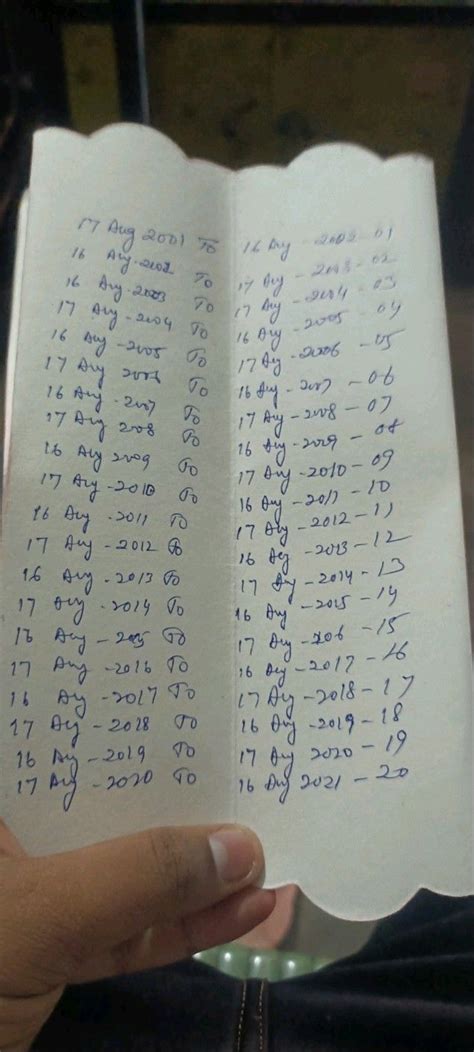 17 Aug 2001 To 16 Aug - 2002 - 01
16 Aug - 2002 To 17 Aug - 2003 - 02
16 Aug - 2003 To 17 Aug - 2004 - 03
17 Aug - 2004 To 16 Aug - 2005 - 04
16 Aug - 2005 To 17 Aug - 2006 - 05
17 Aug 2006 To 16 Aug - 2007 - 06
16 Aug - 2007 To 17 Aug - 2008 - 07
17 Aug 2008 To 16 Aug - 2009 - 08
16 Aug 2009 To 17 Aug - 2010 - 09
17 Aug - 2010 To 16 Aug - 2011 - 10
16 Aug - 2011 To 17 Aug - 2012 - 11
17 Aug - 2012 To 16 Aug - 2013 - 12
16 Aug - 2013 To 17 Aug - 2014 - 13
17 Aug - 2014 To 16 Aug - 2015 - 14
16 Aug - 2015 To 17 Aug - 2016 - 15
17 Aug - 2016 To 16 Aug - 2017 - 16
16 Aug - 2017 To 17 Aug - 2018 - 17
17 Aug - 2018 To 16 Aug - 2019 - 18
16 Aug - 2019 To 17 Aug 2020 - 19
17 Aug - 2020 To 16 Aug 2021 - 20